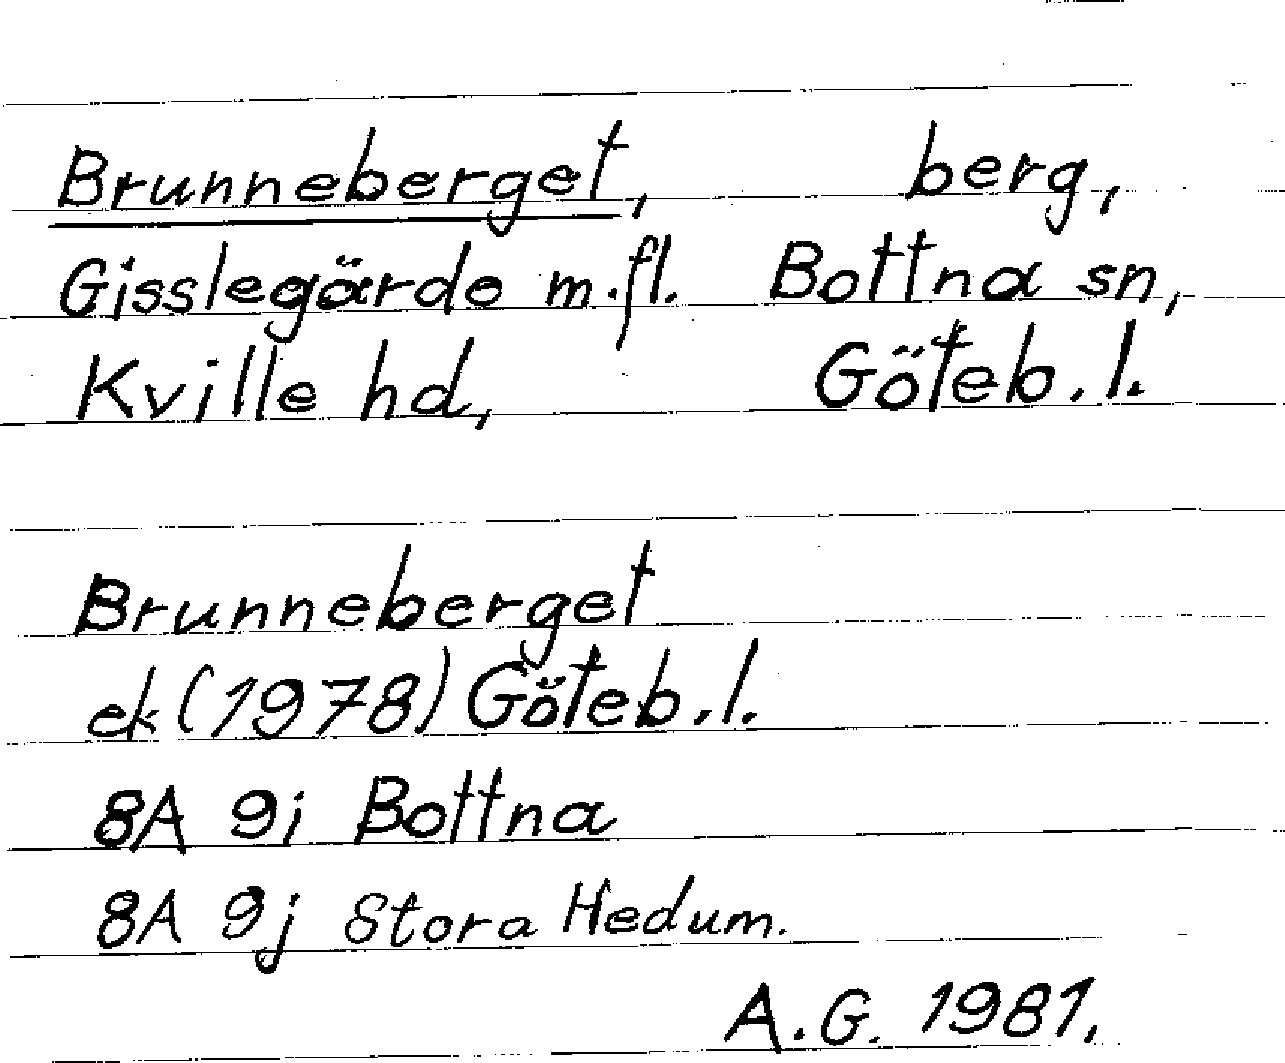 Brunneberget, berg,
Gisslegärde m.fl. Bottna sn,
Kville hd, Göteb.l.
Brunneberget
ek (1978) Göteb.l.
8A 9i Bottna
8A 9j Stora Hedum.
A.G. 1981.